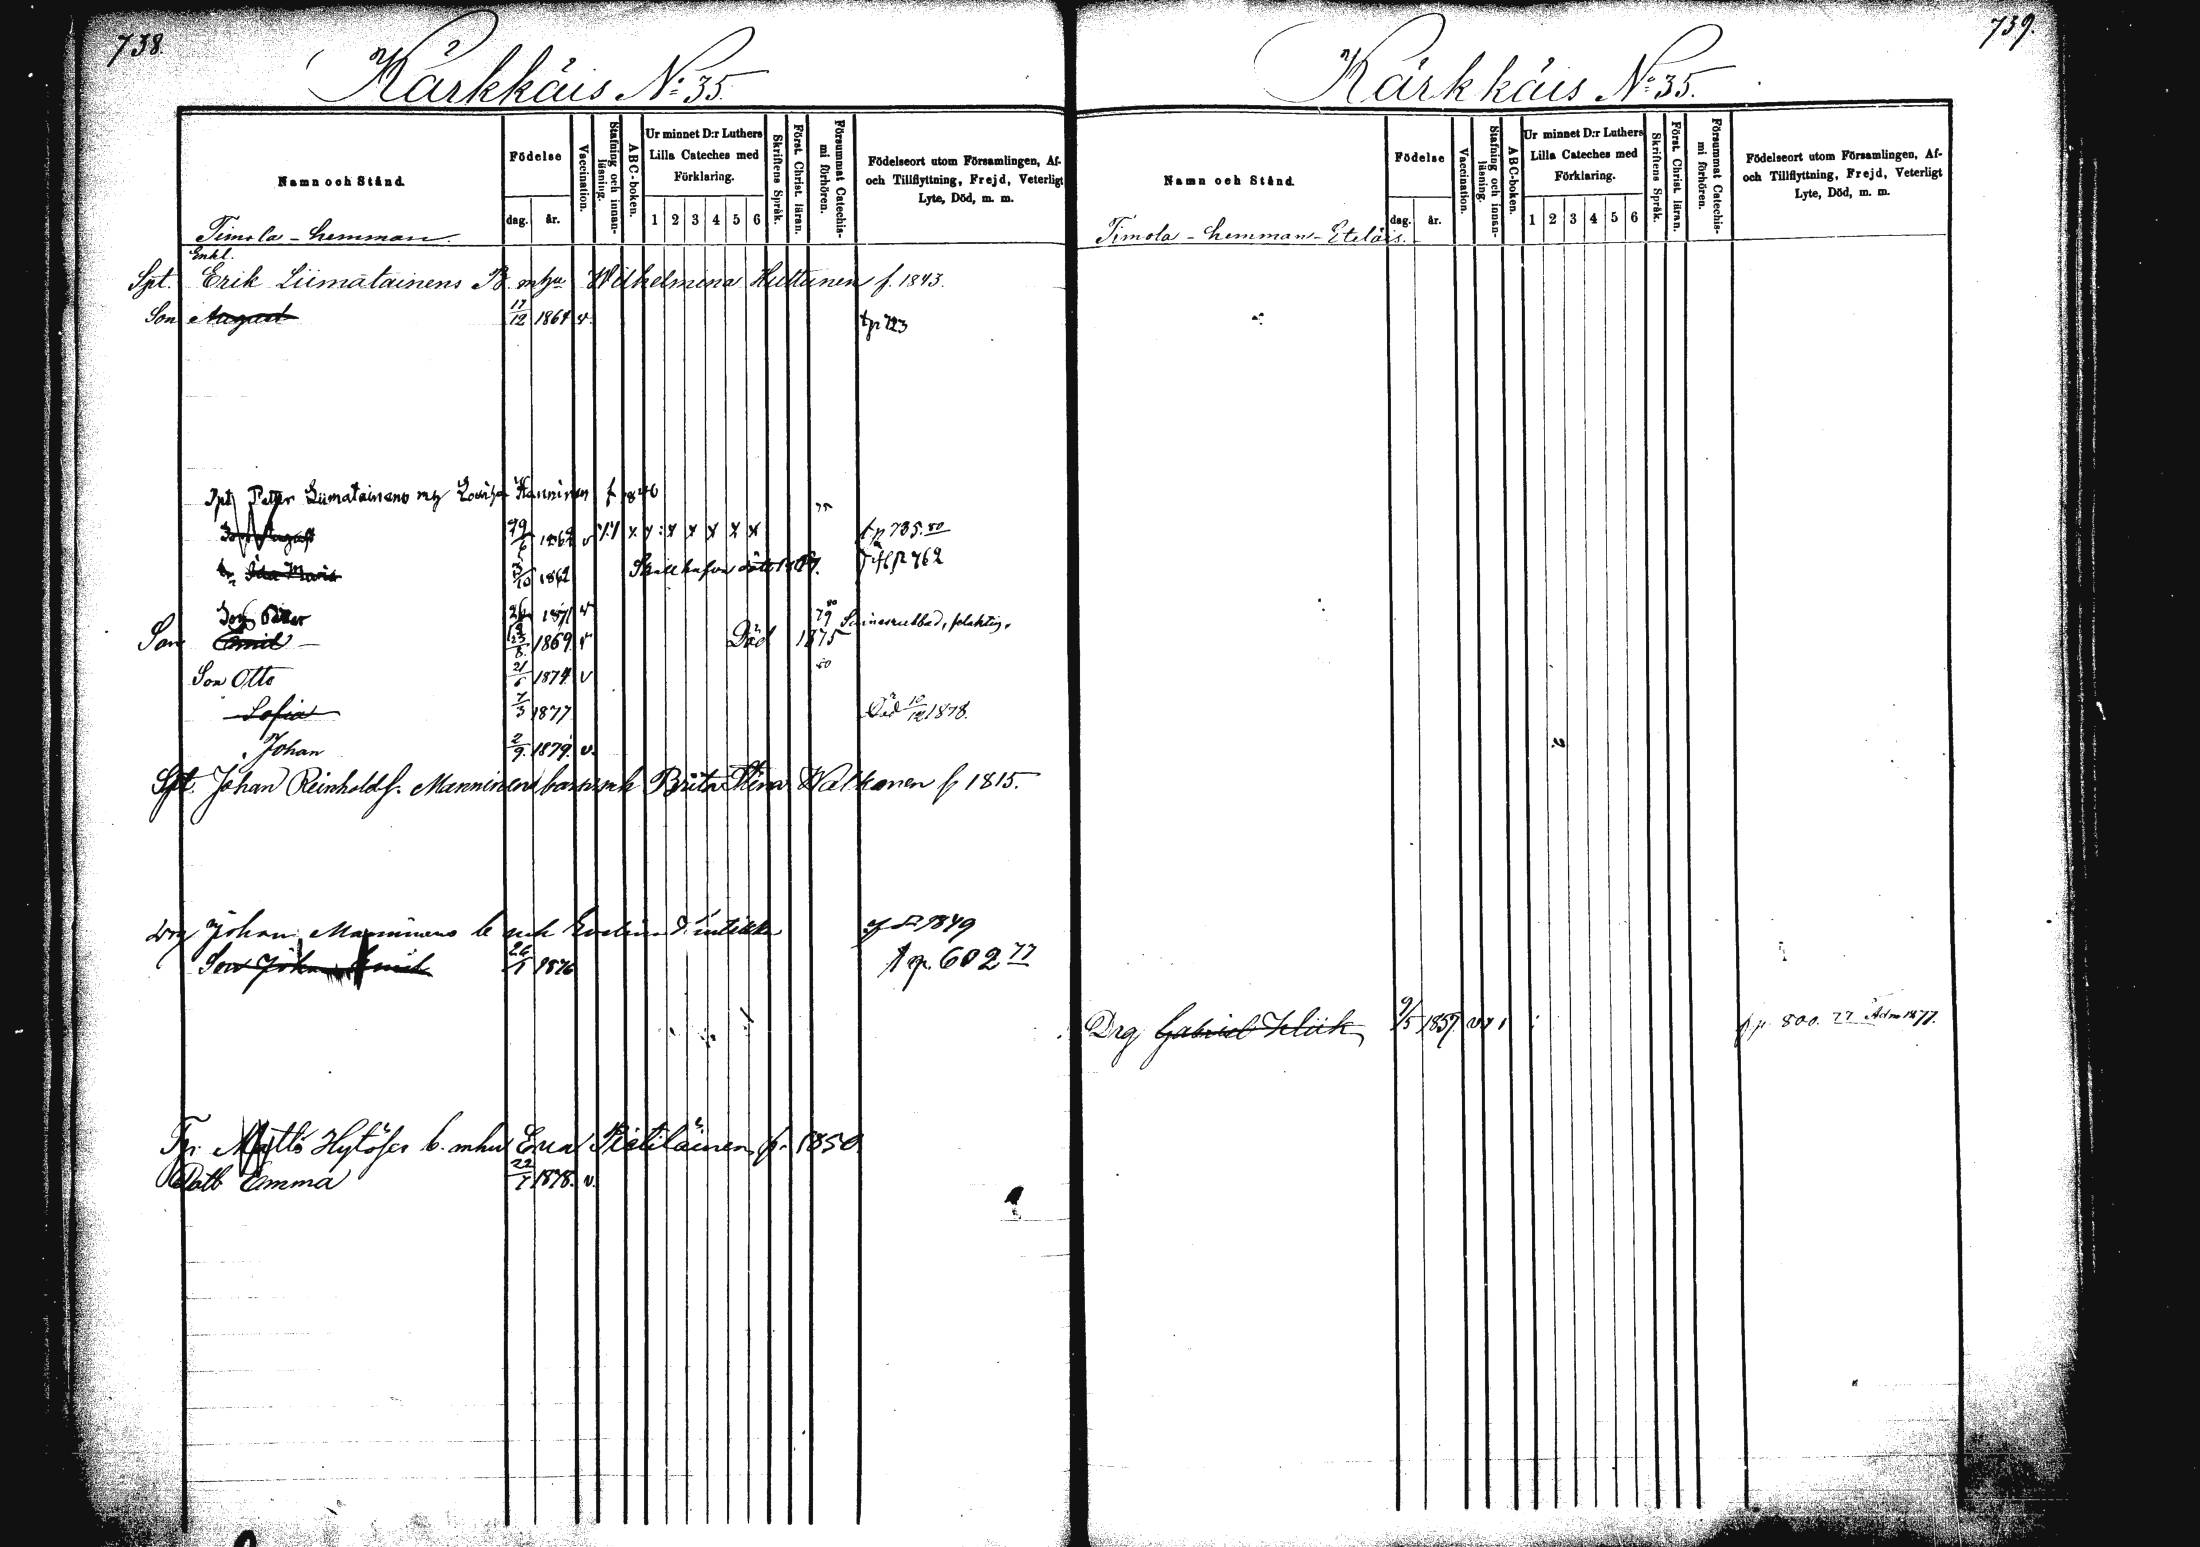 738.
Kärkkäis No 35.
Namn och Stånd.
Födelse
dag.
år.
Vaccination.
Stafning och innan-
läsning.
ABC-boken.
Ur minnet D:r Luthers
Lilla Cateches med
Förklaring.
1 2 3 4 5 6
Skriftens Språk.
Först. Christ. läran.
Försummat Catechis-
mi förhören.
Födelseort utom Församlingen, Af-
och Tillflyttning, Frejd, Veterligt
Lyte, Död, m. m.
Timola - hemman.
Enkl.
Spt. Erik Liimatainens B. mhu Wilhelmina Huttunen f. 1843.
Son August 17/12 1864 v. tp 723
Spt Petter Liimatainens Lovisa Manninen f 1846
75
Son August v x x x x x tp 735. 80
Ida Maria 3/10 1862 762
Son Petter 1871 v 79 80
Son Emil 1869 v Död 1875
Son Otto 21/6 1874 v 80
Sofia 7/3 1877 Död 10/12 1878.
Johan 2/9. 1879. v.
Spt. Johan Reinholdf. Manninens barn mh Brita Stina Walkonen f 1815.
Drg Johan Manninens b mh Evelina 1849
Son Johan Emil 26/1 1876 tp. 602 77
Matts Hytöses b. mhu Eva Pietiläinen f. 1850.
Dott Emma 1878. v.
739.
Kärkkäis No 35.
Namn och Stånd.
Födelse
dag.
år.
Vaccination.
Stafning och innan-
läsning.
ABC-boken.
Ur minnet D:r Luthers
Lilla Cateches med
Förklaring.
1 2 3 4 5 6
Skriftens Språk.
Först. Christ. läran.
Försummat Catechis-
mi förhören.
Födelseort utom Församlingen, Af-
och Tillflyttning, Frejd, Veterligt
Lyte, Död, m. m.
Timola - hemman - Eteläis.
Drg Gabriel 9/5 1857 800. 77 Adm 1877.